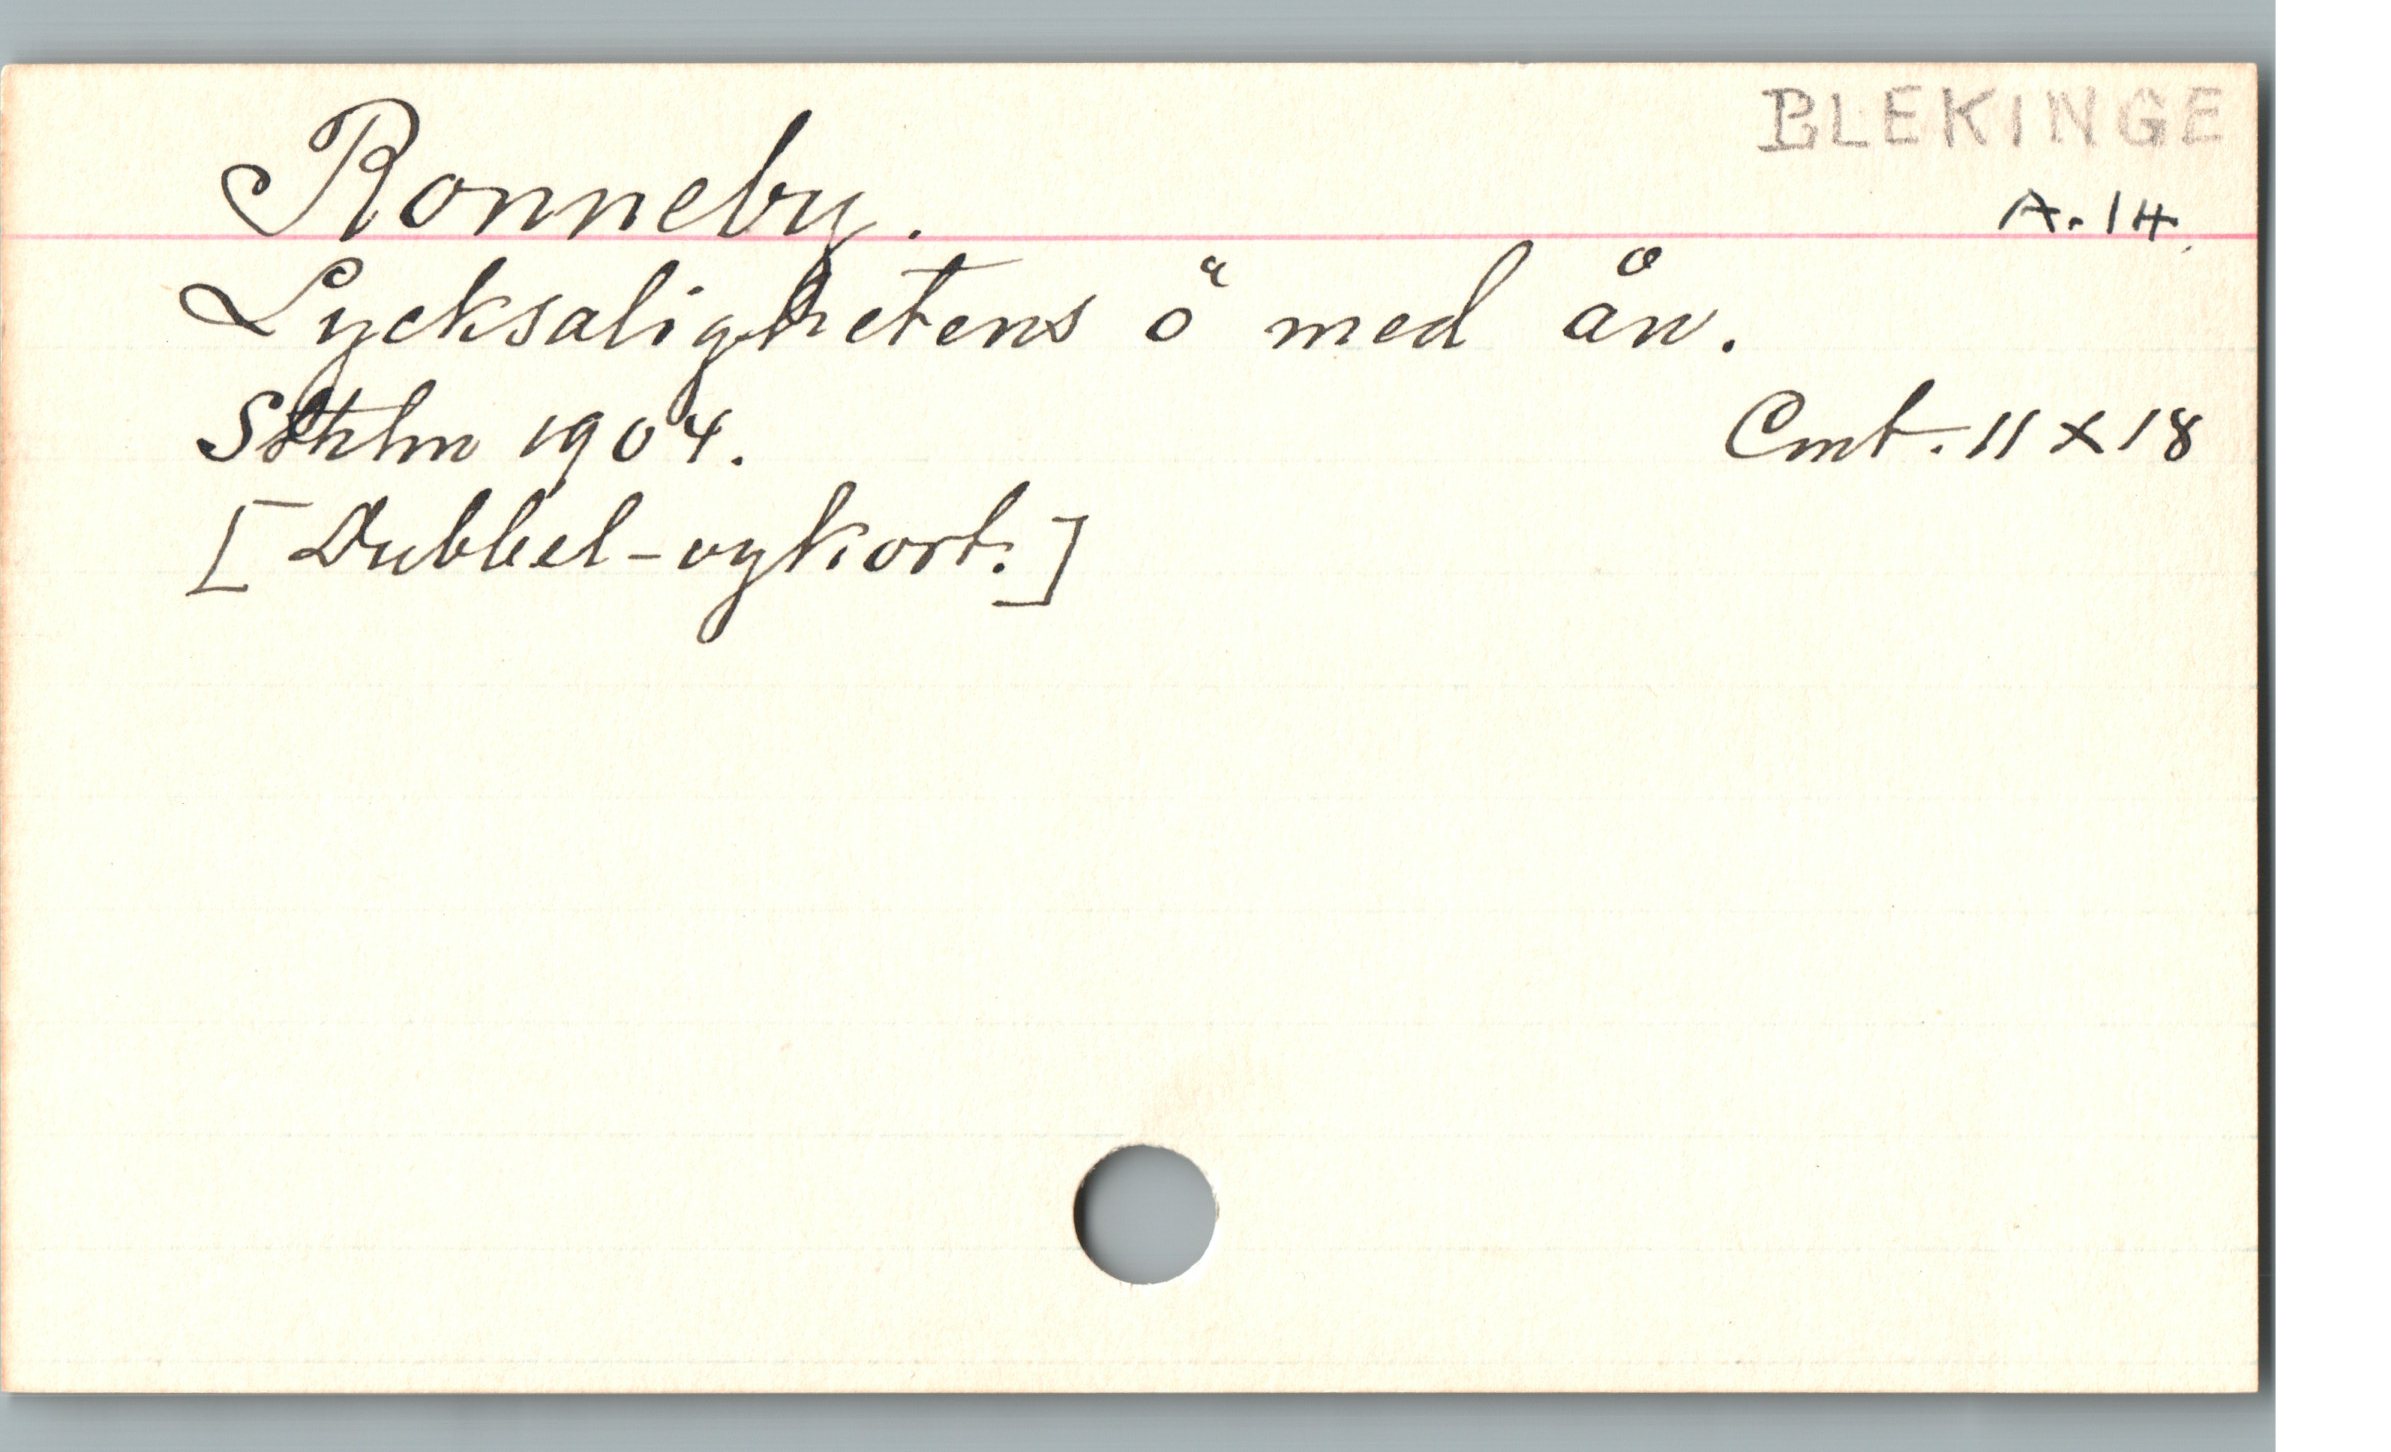 BLEKINGE
Ronneby.
A. 14.
Lycksalighetens ö med ån.
Sthlm 1904.
Cmt. 11 x 18
[Dubbel-vykort.]